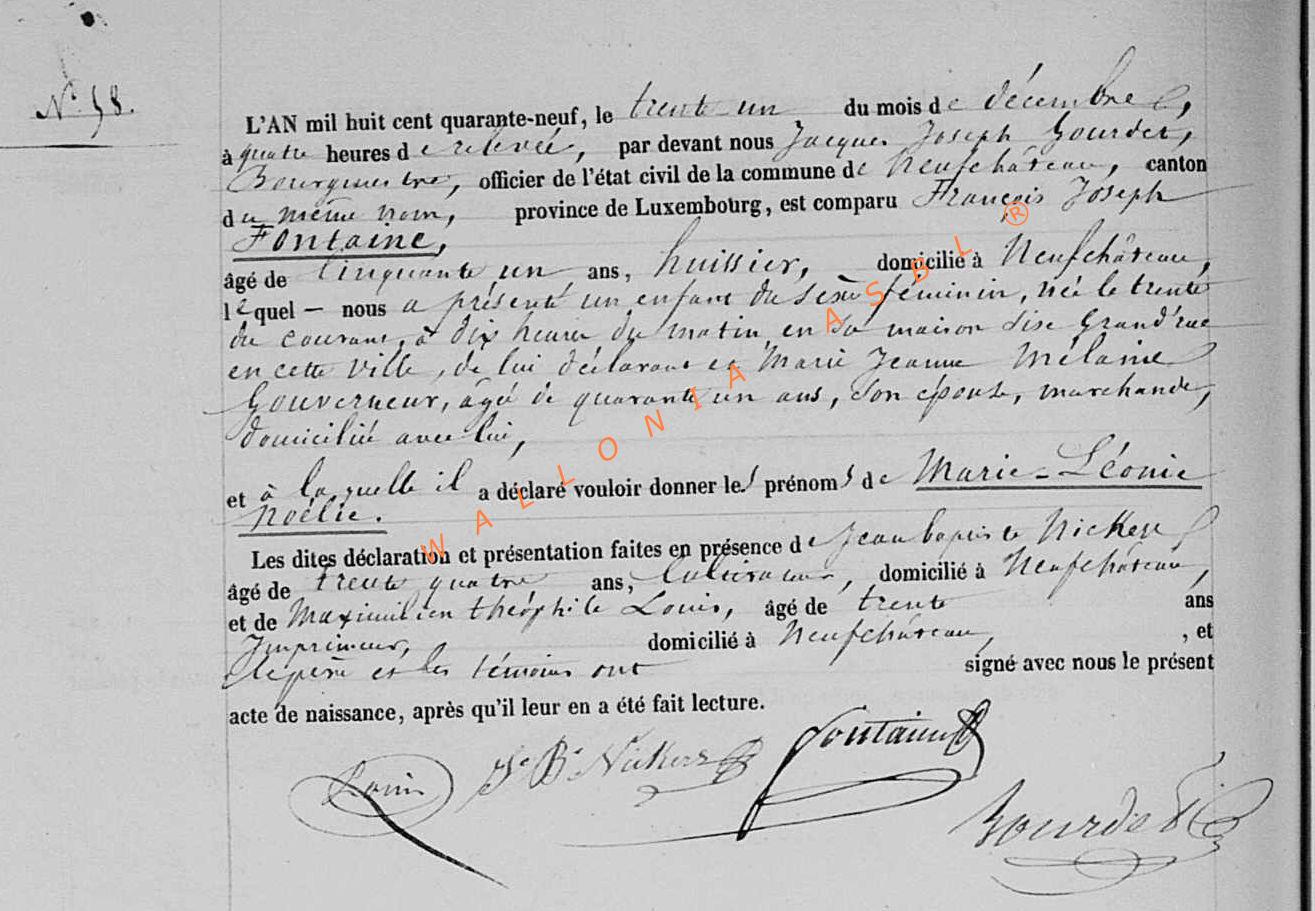 N.° 58.
L'AN mil huit cent quarante-neuf, le trente un du mois de décembre,
à quatre heures de relevée, par devant nous Jacques Joseph Gourdet,
Bourgmestre, officier de l'état civil de la commune de Neufchâteau, canton
du même nom, province de Luxembourg, est comparu François Joseph
Fontaine,
âgé de cinquante un ans, huissier, domicilié à Neufchâteau,
lequel – nous a présenté un enfant du sexe féminin, née le trente
du courant, à dix heures du matin en sa maison sise Grand'rue
en cette ville, de lui déclarant et Marie Jeanne Mélanie
Gouverneur, âgée de quarante un ans, son épouse, marchande,
domiciliée avec lui,
et à laquelle il a déclaré vouloir donner les prénoms de Marie-Léonie
Noélie.
Les dites déclaration et présentation faites en présence de Jean baptiste Nickers
âgé de trente quatre ans, cultivateur, domicilié à Neufchâteau,
et de Maximilien théophile Louis, âgé de trente ans
Imprimeur, domicilié à Neufchâteau, , et
le père et les témoins ont signé avec nous le présent
acte de naissance, après qu'il leur en a été fait lecture.
Louis J.n B.te Nickers Fontaine
Gourdet
WALLONIA ASBL ®